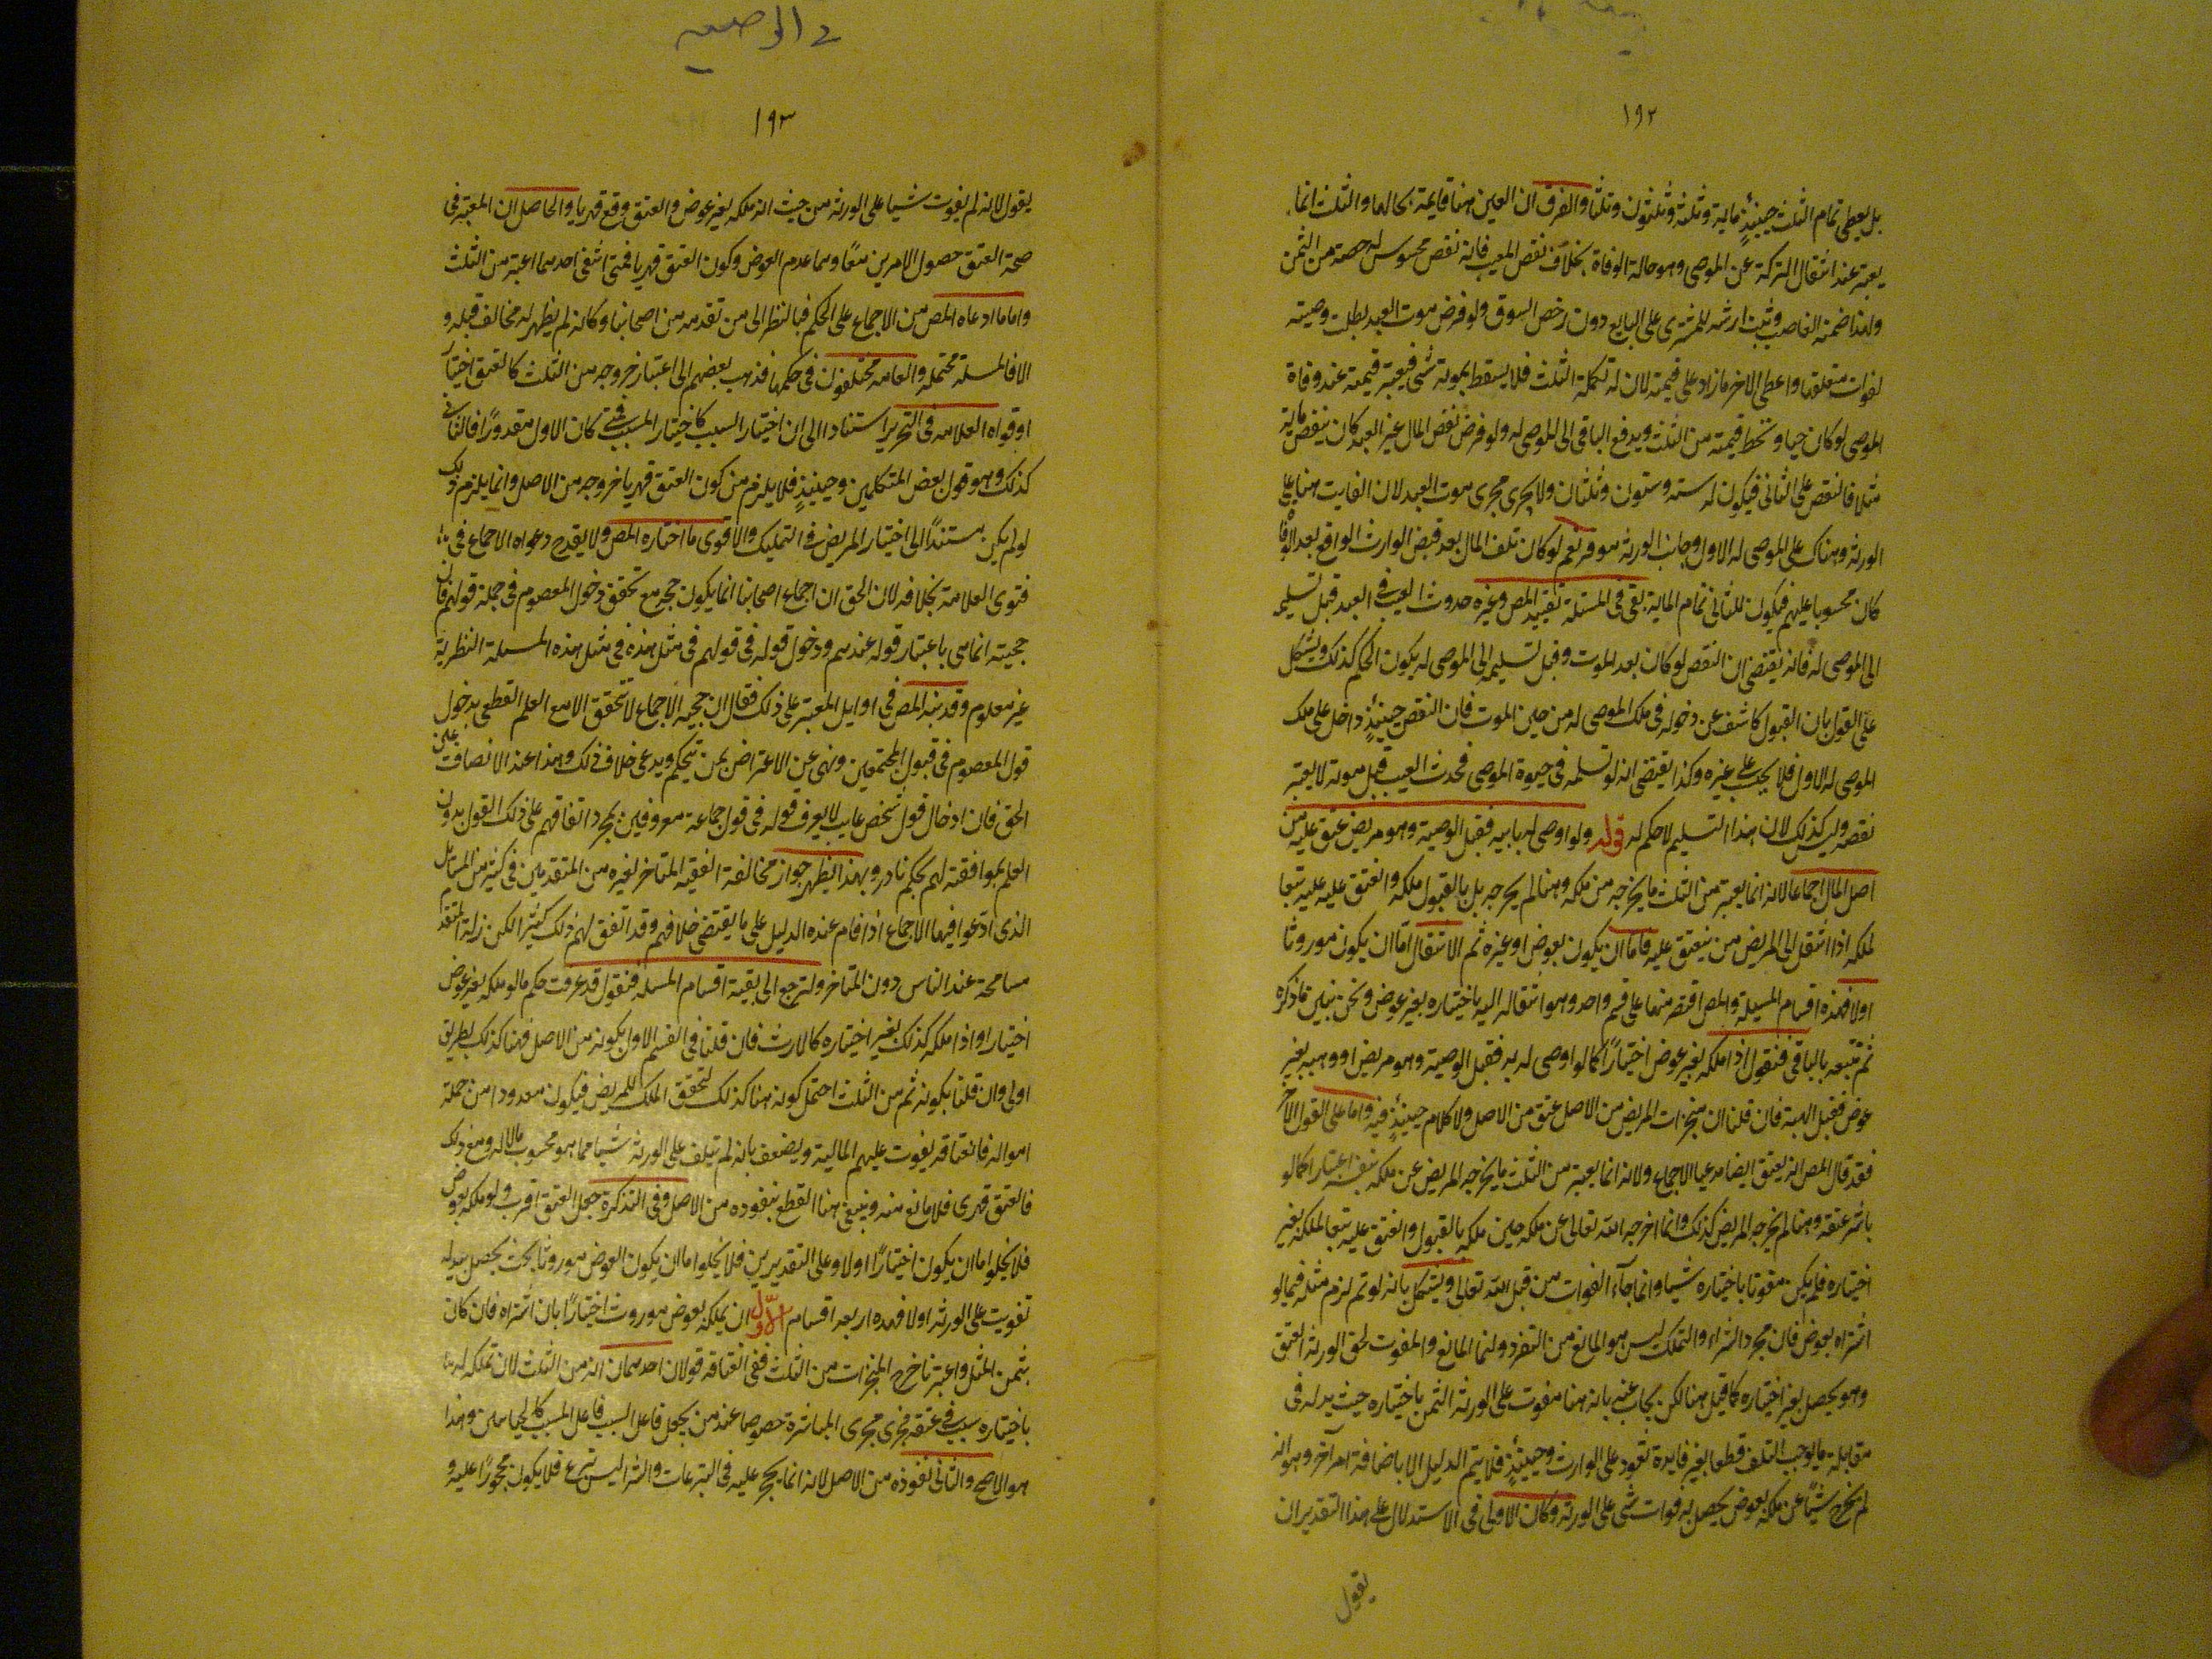 ١٩٢
بل يعطى تمام الثلث حينئذٍ ماية وثلثة وثلثون وثلثا والفرق ان العين هنا قايمة بحالها والثلث انما
يعتبر عند انتقال التركة عن الموصى وهو حالة الوفاة بخلاف نقص المعيب فانه نقص محسوس له حصة من الثمن
ولهذا ضمنه الغاصب وثبت ارشه للمشترى على البايع دون رخص السوق ولو فرض موت العبد بطلت وصيته
لفوات متعلقها واعطى الاخر ما زاد على قيمته لان له تكملة الثلث فلا يسقط بموته شئ فيعتبر قيمته عند وفاة
الموصى لو كان حيا وتحط قيمته من الثلث ويدفع الباقى الى الموصى له ولو فرض نقص المال غير العبد كان ينقص ماية
مثلا فالنقص على الثانى فيكون له ستة وستون وثلثان ولا يجرى مجرى موت العبد لان الفايت هنا على
الورثة وهناك على الموصى له الاول وجانب الورثة موفر نعم لو كان تلف المال بعد قبض الوارث الواقع بعد الوفاة
كان محسوبا عليهم فيكون للثانى تمام الماية بقى فى المسئلة تقييد المص وغيره حدوث العيب فى العبد قبل تسليمه
الى الموصى له فانه يقتضى ان النقص لو كان بعد الموت وقبل تسليمه الى الموصى له يكون الحكم كذلك ويشكل
على القول بان القبول كاشف عن دخوله فى ملك الموصى له من حين الموت فان النقص حينئذٍ داخل على ملك
الموصى له الاول فلا يجب على غيره وكذا يقتضى انه لو تسلمه فى حيوة الموصى فحدث العيب قبل موته لا يعتبر
نقصه وليس كذلك لان هذا التسليم لا حكم له قوله ولو اوصى له بابيه فقبل الوصية وهو مريض عتق عليه من
اصل المال اجماعا لانه انما يعتبر من الثلث ما يخرجه من ملكه وهنا لم يخرجه بل بالقبول ملكه وانعتق عليه تبعا
لملكه اذا انتقل الى المريض من ينعتق عليه فاما ان يكون بعوض او غيره ثم الانتقال اما ان يكون موروثا
اولا فهذه اقسام المسيلة والمص اقتصر منها على قسم واحد وهو انتقاله اليه باختياره بغير عوض ونحن نبين ما ذكره
ثم نتبعه بالباقى فنقول اذا ملكه بغير عوض اختيارًا كما لو اوصى له به فقبل الوصية وهو مريض او وهبه بغير
عوض فقبل الهبة فان قلنا ان منجزات المريض من الاصل عتق من الاصل ولا كلام حينئذٍ فيه واما على القول الاخر
فقد قال المص انه يعتق ايضا مدعيا الاجماع ولانه انما يعتبر من الثلث ما يخرجه المريض عن ملكه بنفسه اختيارا كما لو
باشر عتقه وهنا لم يخرجه المريض كذلك وانما اخرجه الله تعالى عن ملكه حين ملكه بالقبول وانعتق عليه تبعا لملكه بغير
اختياره فلم يكن مفوتا باختياره شيئا وانما جآء الفوات من قبل الله تعالى ويشكل بانه لو تم لزم مثله فيما لو
اشتراه بعوض فان مجرد الشراء والتملك ليس هو المانع من التفرد وانما المانع والمفوت لحق الورثة العتق
وهو يحصل بغير اختياره كما قيل هنا لكن يجاب عنه بانه هنا مفوت على الورثة الثمن باختياره حيث بدله فى
مقابلة ما يوجب التلف قطعا بغير فايدة تعود على الوارث وحينئذٍ فلا يتم الدليل الا باضافة امر آخر وهو انه
لم يخرج شيئا عن ملكه بعوض يحصل به فوات شئ على الورثة وكان الاولى فى الاستدلال على هذا التقدير ان
يقول
فى الوصية
١٩٣
يقول لانه لم يفوت شيئا على الورثة من حيث انه ملكه بغير عوض والعتق وقع قهريا والحاصل ان المعتبر فى
صحة العتق حصول الامرين معًا وهما عدم العوض وكون العتق قهريا فمتى انتفى احدهما اعتبر من الثلث
واما ما ادعاه المص من الاجماع على الحكم فبالنظر الى من تقدمه من اصحابنا وكانه لم يظهر له مخالف قبله و
الا فالمسئلة محتملة والعامة مختلفون فى حكمها فذهب بعضهم الى اعتبار خروجه من الثلث كالعتق اختيارًا
او قواه العلامة فى التحرير استنادا الى ان اختيار السبب كاختيار المسبب فمتى كان الاول مقدورًا فالثانى
كذلك وهو قول بعض المتكلمين وحينئذٍ فلا يلزم من كون العتق قهريا خروجه من الاصل وانما يلزم ذلك
لو لم يكن مستندًا الى اختيار المريض فى التمليك والاقوى ما اختاره المص ولا يقدح دعواه الاجماع فى
فتوى العلامة بخلافه لان الحق ان اجماع اصحابنا انما يكون حجه مع تحقق دخول المعصوم فى جملة قولهم فان
حجيته انما هى باعتبار قوله عندهم ودخول قوله فى قولهم فى مثل هذه فى مثل هذه المسئلة النظرية
غير معلوم وقد نبه المص فى اوايل المعتبر على ذلك فقال ان حجيه الاجماع لا تتحقق الا مع العلم القطعى بدخول
قول المعصوم فى قبول المجتمعين ونهى عن الاعتراض بمن يتحكم ويدعى خلاف ذلك وهذا عند الانصاف عين
الحق فان ادخال قول شخص غايب لا يعرف قوله فى قول جماعة معروفين بمجرد اتفاقهم على ذلك القول بدون
العلم بموافقته لهم بحكم نادر وبهذا يظهر جواز مخالفة الفقيه المتاخر لغيره من المتقدمين فى كثير من المسايل
الذى ادعوا فيها الاجماع اذا قام عنده الدليل على ما يقتضى خلافهم وقد اتفق لهم ذلك كثيرًا لكن زلة المتقدم
مسامحة عند الناس دون المتاخر ولنرجع الى بقية اقسام المسئلة فنقول قد عرفت حكم ما لو ملكه بغير عوض
اختيارا واذا ملكه كذلك بغير اختياره كالارث فان قلنا فى القسم الاول بكونه من الاصل فهنا كذلك بطريق
اولى وان قلنا بكونه ثم من الثلث احتمل كونه هنا كذلك لتحقق الملك للمريض فيكون معدودا من جملة
امواله فانعتاقه يفوت عليهم المالية ويضعف بانه لم يتلف على الورثة شيئا مما هو محسوب مالا له ومع ذلك
فالعتق قهرى فلا مانع منه وينبغى هنا القطع بنفوذه من الاصل وفى التذكرة جعل العتق اقرب ولو ملكه بعوض
فلا يخلو اما ان يكون اختيارًا اولا وعلى التقديرين فلا يخلوا ما ان يكون العوض موروثا بحيث يحصل ببذله
تفويت على الورثه اولا فهذه اربعه اقسام الاوّل ان يملكه بعوض موروث اختيارًا بان اشتراه فان كان
بثمن المثل واعتبرنا خرج المنجزات من الثلث ففى انعتاقه قولان احدهما انه من الثلث لان تملكه له
باختياره سبب فى عتقه فجرى مجرى المباشرة خصوصا عند من يجعل فاعل السبب فاعل المسبب كالجبايين وهذا
هو الاصح والثانى نفوذه من الاصل لانه انما يحجر عليه فى التبرعات والشراء ليس تبرع فلا يكون محجورًا عليه و